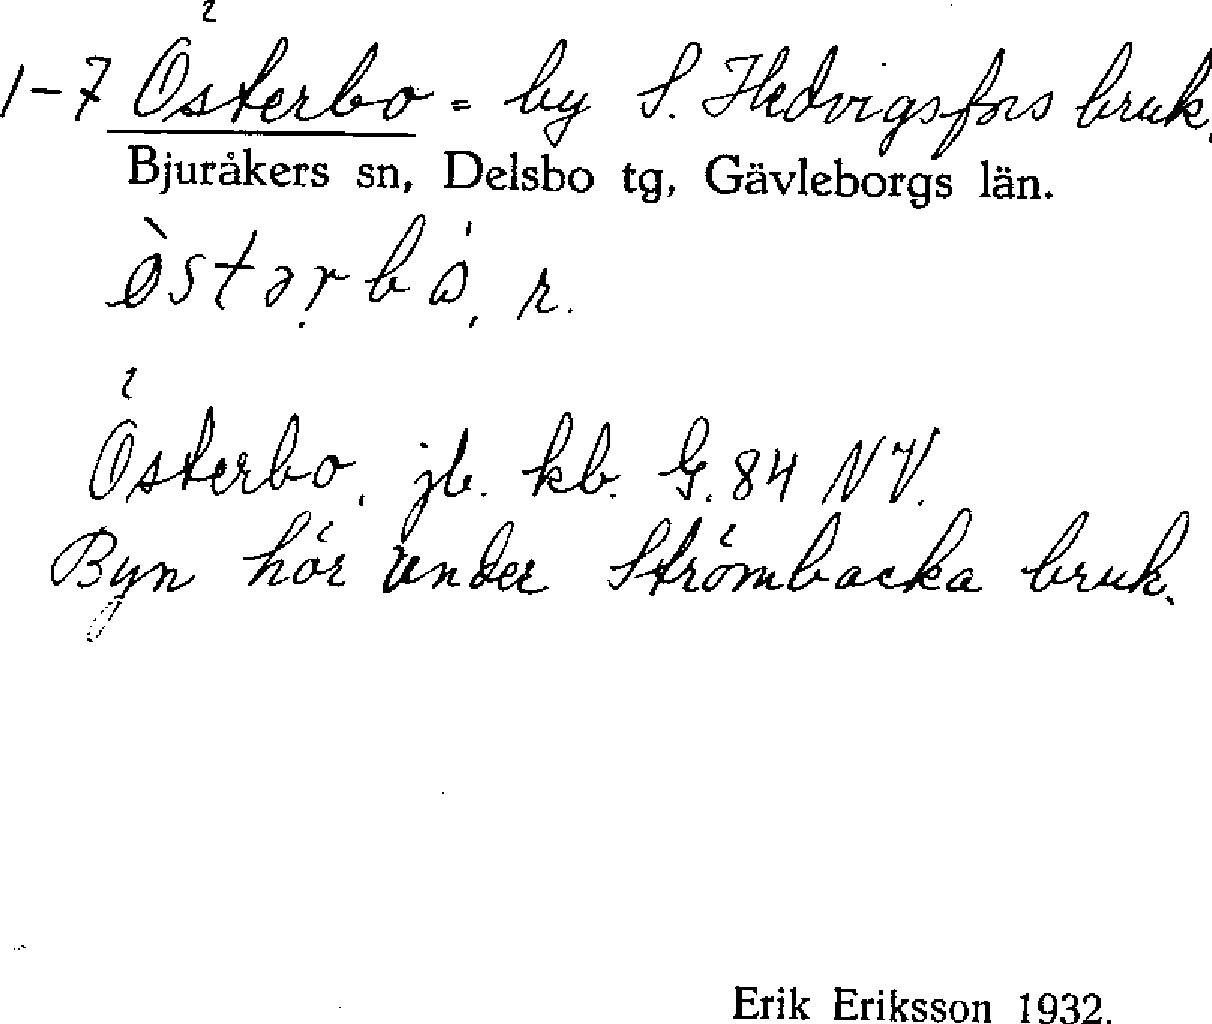 1-7 Österbo = by S. Hedvigsfors bruk.
Bjuråkers sn, Delsbo tg, Gävleborgs län.
r.
Österbo, jb. kb. G. 84 NV.
Byn hör under Strömbacka bruk.
Erik Eriksson 1932.